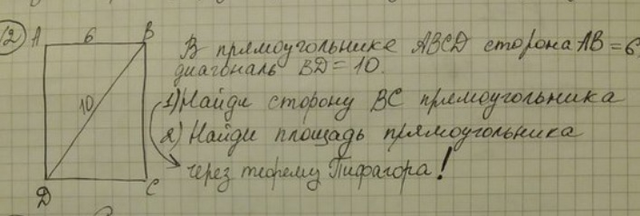 2
A 6 B
10
D C
В прямоугольнике ABCD сторона AB = 6
диагональ BD = 10.
1) Найди сторону BC прямоугольника
2) Найди площадь прямоугольника
через теорему Пифагора!